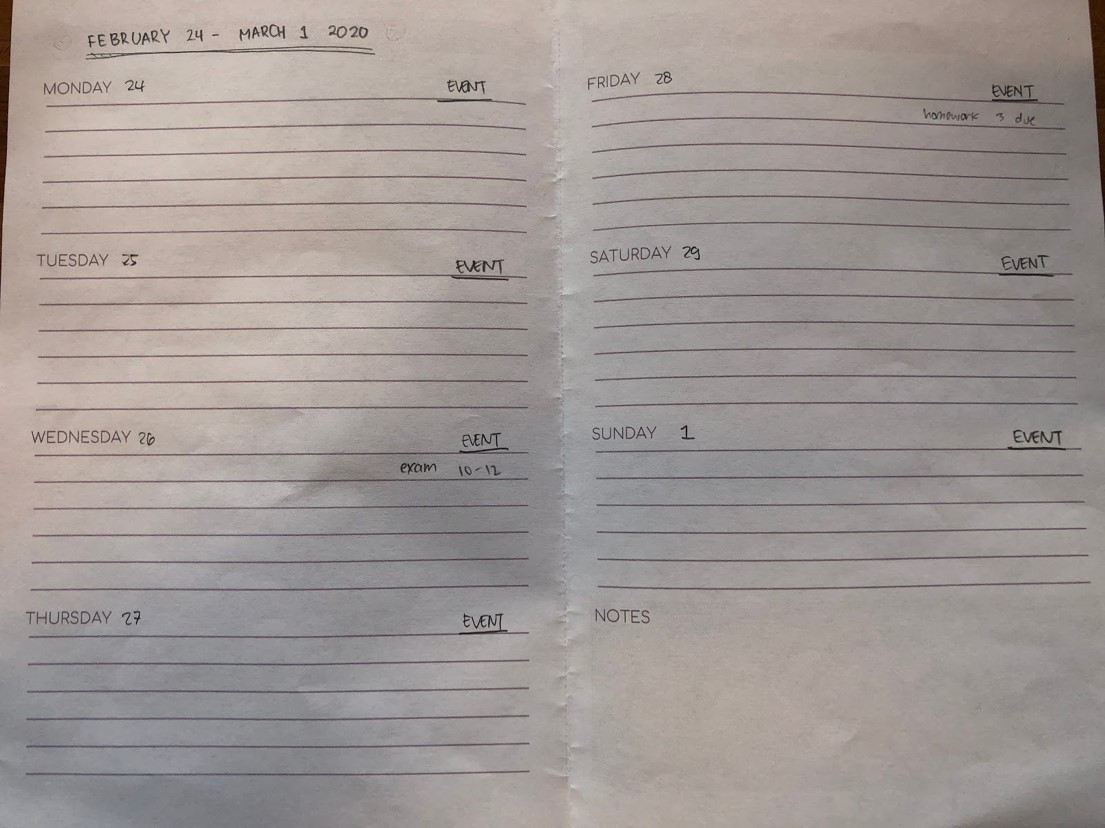 FEBRUARY 24 - MARCH 1 2020
MONDAY 24 EVENT
TUESDAY 25 EVENT
WEDNESDAY 26 EVENT
exam 10-12
THURSDAY 27 EVENT
FRIDAY 28 EVENT
homework 3 due
SATURDAY 29 EVENT
SUNDAY 1 EVENT
NOTES